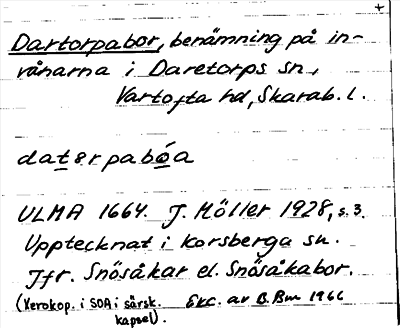 +
Dartorpabor, benämning på in-
vånarna i Daretorps sn,
Vartofta hd, Skarab. l.
datərpabóa
ULMA 1664. J. Möller 1928, s. 3.
Upptecknat i Korsberga sn.
Jfr. Snösåkar el. Snösåkabor.
(Xerokop. i SOA i särsk. Exc. av B. Bm 1966
kapsel).